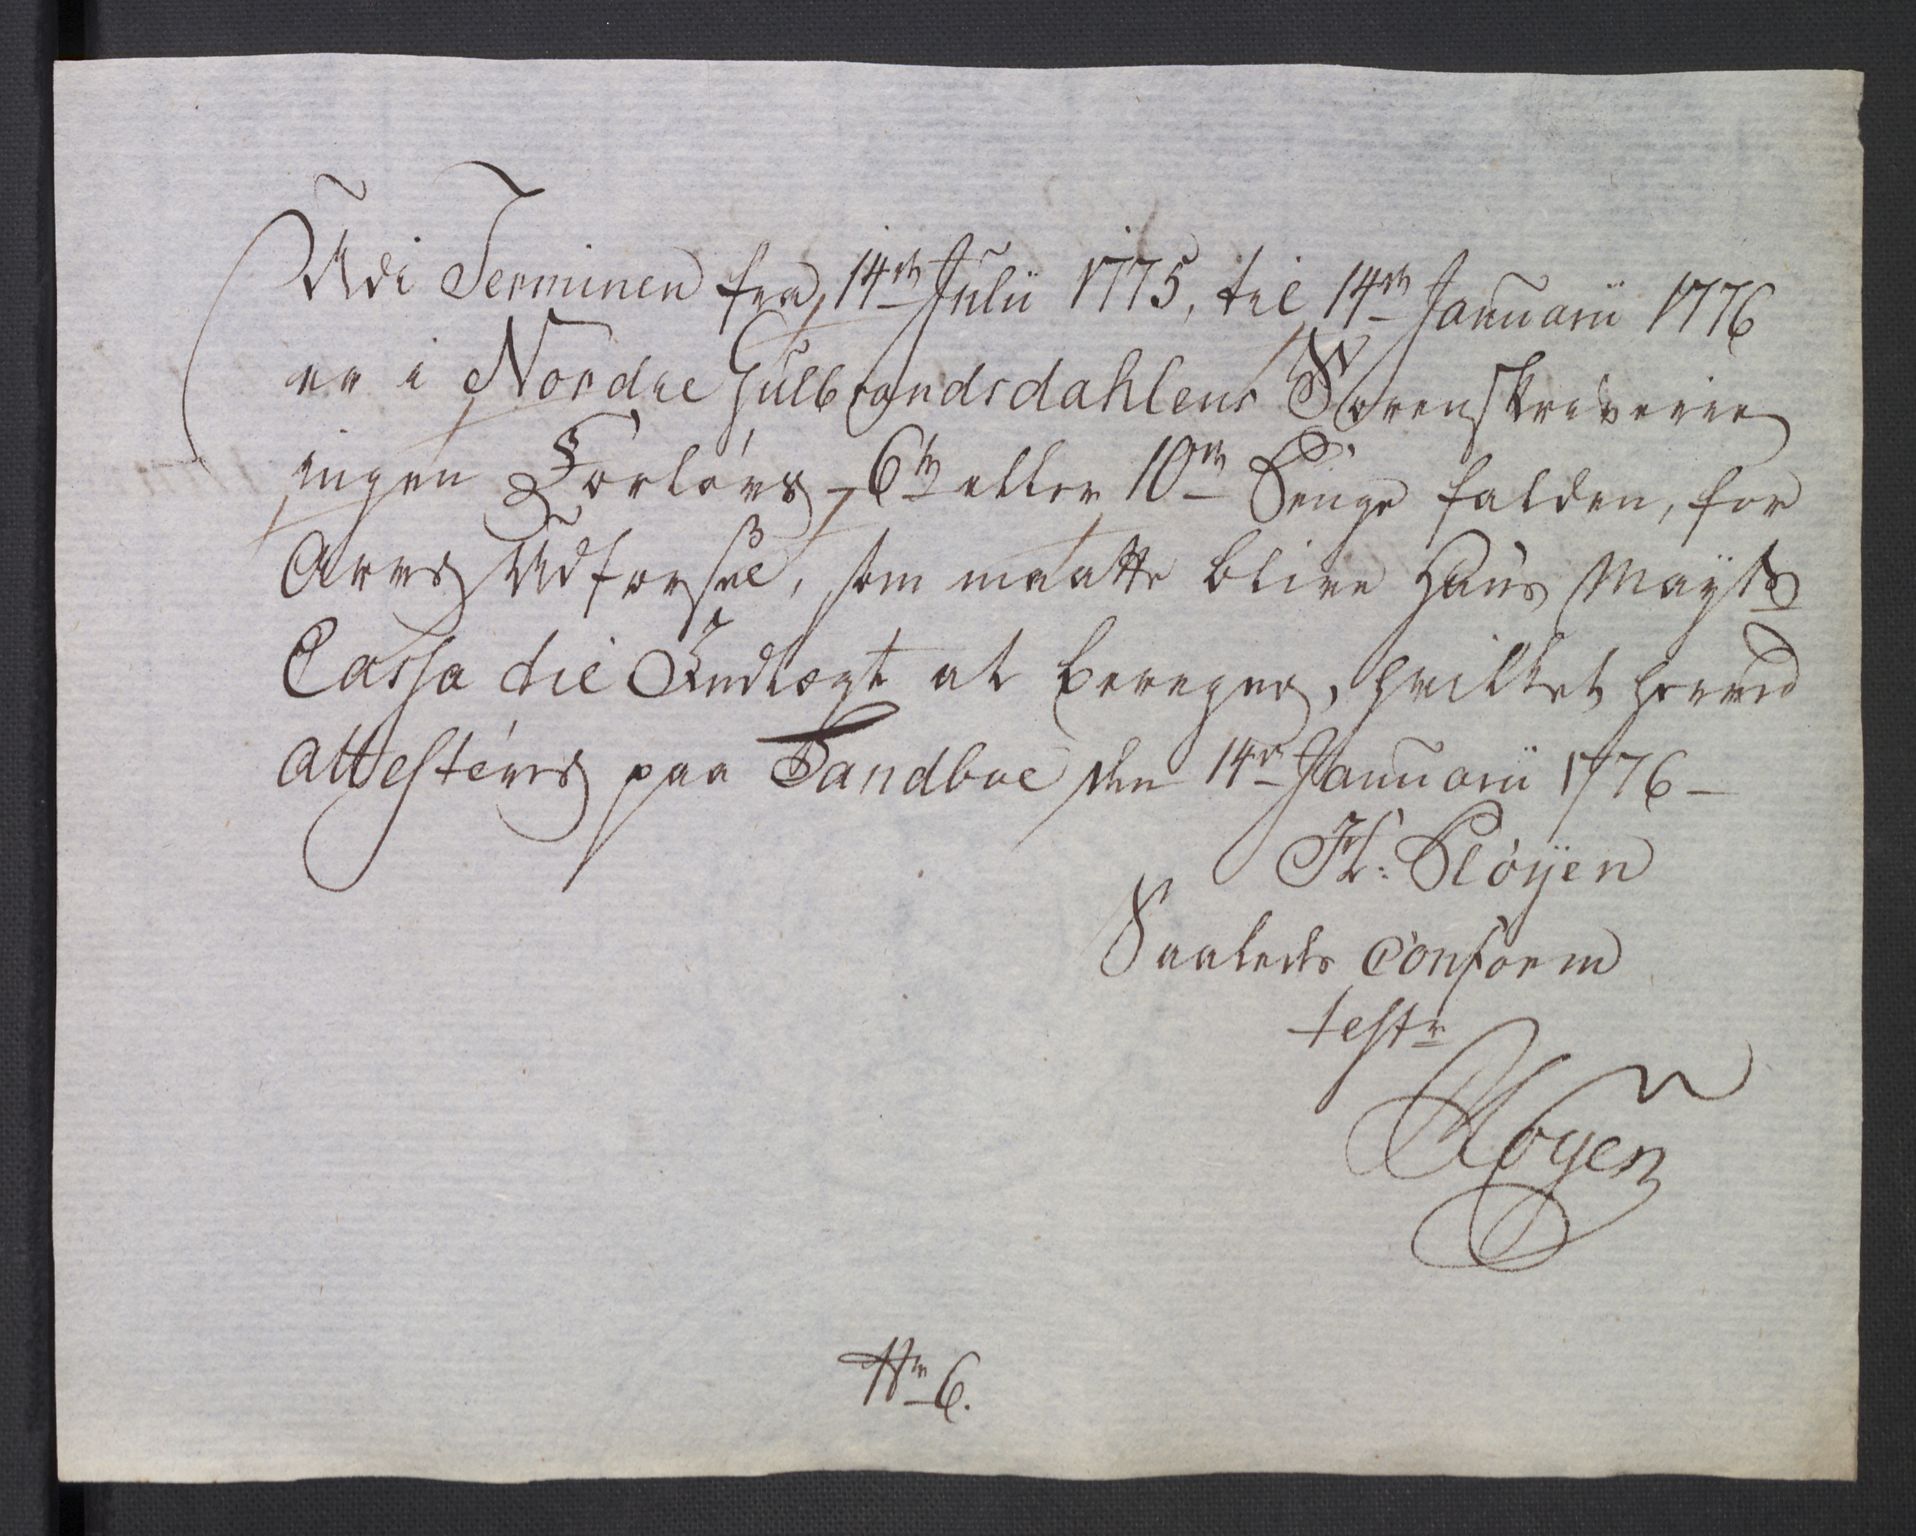 Udi Terminen fra 14de Julii 1775, til 14de Januarii 1776
er i Nordre Gulbrandsdahlens Sorenskriverie
ingen Forlovs, 6te eller 10de Penge falden, for
Arves Udførsel, som maatte blive Hans Mayts
Cassa til Indtægt at beregne, hvilket herved
Attesteres paa Sandboe den 14de Januarii 1776
H: Pløÿen
Saaledes Conform
test:
Pløyen
No 6.